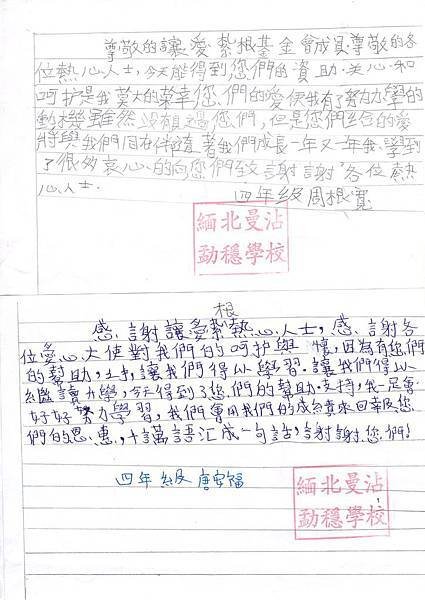 尊敬的讓愛紮根基金會成員尊敬的各
位熱心人士,今天能得到您們的資助.关心.和
呵护是我莫大的荣幸您們的愛伊我有了努力學的
動機雖然沒有見過您們,但是您們给的愛
將與我們同在伴隨著我們成長一年又一年我學到
了很多衷心的向您們至文謝謝各位熱
心人士.
四年级周根寬
緬北曼沾
勐穩學校
根
感謝讓愛紮熱心人士,感謝各
位爱心大使對我們的呵护與 懷,因為有您們
的幫助,才,讓我們得以學習.讓我們得以
繼讀力學,今天得到了您們的幫助.支持,我一定會
好好努力學習,我們會用我們的成績來回報您
們的恩惠,千言萬語汇成一句話,謝謝您們!
四年級唐安福
緬北曼沾
勐穩學校